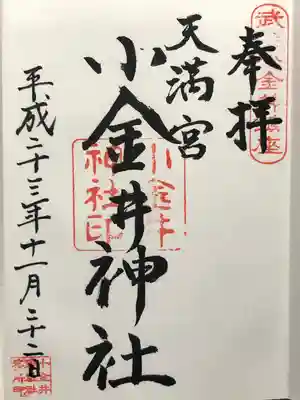 奉拝
天満宮
小金井神社
小金井
神社印
平成二十三年十一月二十二日